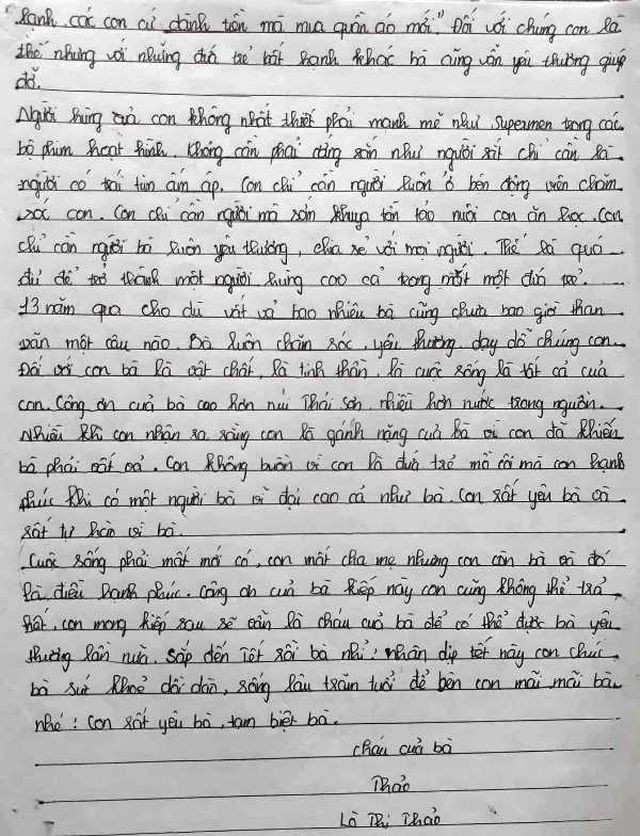 lạnh các con cứ dành tiền mà mua quần áo mới." Đối với chúng con là
thế nhưng với những đứa trẻ bất hạnh khác bà cũng vẫn yêu thương giúp
đỡ.
Người hùng của con không nhất thiết phải mạnh mẽ như Supermen trong các
bộ phim hoạt hình. Không cần phải cứng rắn như người sắt chỉ cần là
người có trái tim ấm áp. Con chỉ cần người luôn ở bên động viên chăm
sóc con. Con chỉ cần người mà sớm khuya tần tảo nuôi con ăn học. Con
chỉ cần người bà luôn yêu thương, chia sẻ với mọi người. Thế là quá
đủ để trở thành một người hùng cao cả trong mắt một đứa trẻ.
13 năm qua cho dù vất vả bao nhiêu bà cũng chưa bao giờ than
vãn một câu nào. Bà luôn chăm sóc, yêu thương, dạy dỗ chúng con.
Đối với con bà là vật chất, là tinh thần, là cuộc sống là tất cả của
con. Công ơn của bà cao hơn núi Thái Sơn, nhiều hơn nước trong nguồn.
Nhiều khi con nhận ra rằng con là gánh nặng của bà vì con đã khiến
bà phải vất vả. Con không buồn vì con là đứa trẻ mồ côi mà con hạnh
phúc khi có một người bà vĩ đại cao cả như bà. Con rất yêu bà và
rất tự hào vì bà.
Cuộc sống phải mất mới có, con mất cha mẹ nhưng con còn bà và đó
là điều hạnh phúc. Công ơn của bà kiếp này con cũng không thể trả
hết, con mong kiếp sau sẽ vẫn là cháu của bà để có thể được bà yêu
thương lần nữa. Sắp đến Tết rồi bà nhỉ! nhân dịp tết này con chúc
bà sức khoẻ dồi dào, sống lâu trăm tuổi để bên con mãi mãi bà
nhé! Con rất yêu bà, tạm biệt bà.
cháu của bà
Thảo
Lò Thị Thảo